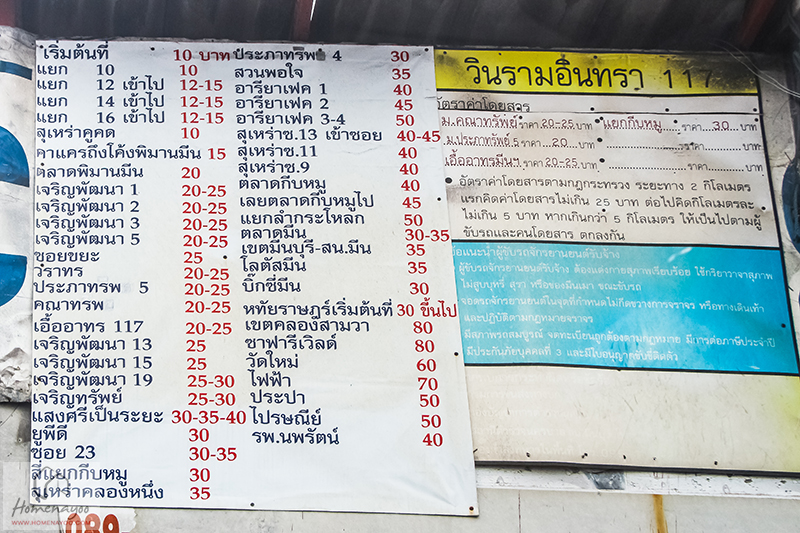 เริ่มต้นที่ 10 บาท
แยก 10 10
แยก 12 เข้าไป 12-15
แยก 14 เข้าไป 12-15
แยก 16 เข้าไป 12-15
สุเหร่าคูคด 10
คาแครถึงโค้งพิมานมีน 15
ตลาดพิมานมีน 20
เจริญพัฒนา 1 20-25
เจริญพัฒนา 2 20-25
เจริญพัฒนา 3 20-25
เจริญพัฒนา 5 20-25
ซอยขยะ 25
วราทร 20-25
ประภาทรพ 5 20-25
คณาทรพ 20-25
เอื้ออาทร 117 20-25
เจริญพัฒนา 13 25
เจริญพัฒนา 15 25
เจริญพัฒนา 19 25-30
เจริญทรัพย์ 25-30
แสงศิริเป็นระยะ 30-35-40
ยูพีดี 30
ซอย 23 30-35
สี่แยกกีบหมู 30
สุเหร่าคลองหนึ่ง 35
ประภาทรัพ 4 30
สวนพอใจ 35
อารียาเฟค 1 40
อารียาเฟค 2 45
อารียาเฟค 3-4 50
สุเหร่าซ.13 เข้าซอย 40-45
สุเหร่าซ.11 40
สุเหร่าซ.9 40
ตลาดกีบหมู 40
เลยตลาดกีบหมูไป 45
แยกลำกระโหลก 50
ตลาดมีน 30-35
เขตมีนบุรี-สน.มีน 35
โลตัสมีน 35
บิ๊กซีมีน 30
หทัยราษฎร์เริ่มต้นที่ 30 ขึ้นไป
เขตคลองสามวา 80
ซาฟารีเวิลด์ 80
วัดใหม่ 60
ไฟฟ้า 70
ประปา 50
ไปรษณีย์ 50
รพ.นพรัตน์ 40
วินรามอินทรา 117
อัตราค่าโดยสาร
ม.คณาทรัพย์ ราคา 20-25 บาท แยกกีบหมู ราคา 30 บาท
ม.ประภาทรัพย์ 5 ราคา 20 บาท ราคา บาท
เอื้ออาทรมีนฯ ราคา 20-25 บาท ราคา บาท
• อัตราค่าโดยสารตามกฎกระทรวง ระยะทาง 2 กิโลเมตร
แรกคิดค่าโดยสารไม่เกิน 25 บาท ต่อไปคิดกิโลเมตรละ
ไม่เกิน 5 บาท หากเกินกว่า 5 กิโลเมตร ให้เป็นไปตามผู้
ขับรถและคนโดยสาร ตกลงกัน
ข้อแนะนำผู้ขับรถจักรยานยนต์รับจ้าง
ผู้ขับรถจักรยานยนต์รับจ้าง ต้องแต่งกายสุภาพเรียบร้อย ใช้กริยาวาจาสุภาพ
ไม่สูบบุหรี่ สุรา หรือของมึนเมา ขณะขับรถ
จอดรถจักรยานยนต์ในจุดที่กำหนดไม่กีดขวางการจราจร หรือทางเดินเท้า
และปฏิบัติตามกฎหมายจราจร
มีสภาพรถสมบูรณ์ จดทะเบียนถูกต้องตามกฎหมาย มีการต่อภาษีประจำปี
มีประกันภัยบุคคลที่ 3 และมีใบอนุญาตขับขี่ติดตัว
Homenayoo
WWW.HOMENAYOO.COM
089